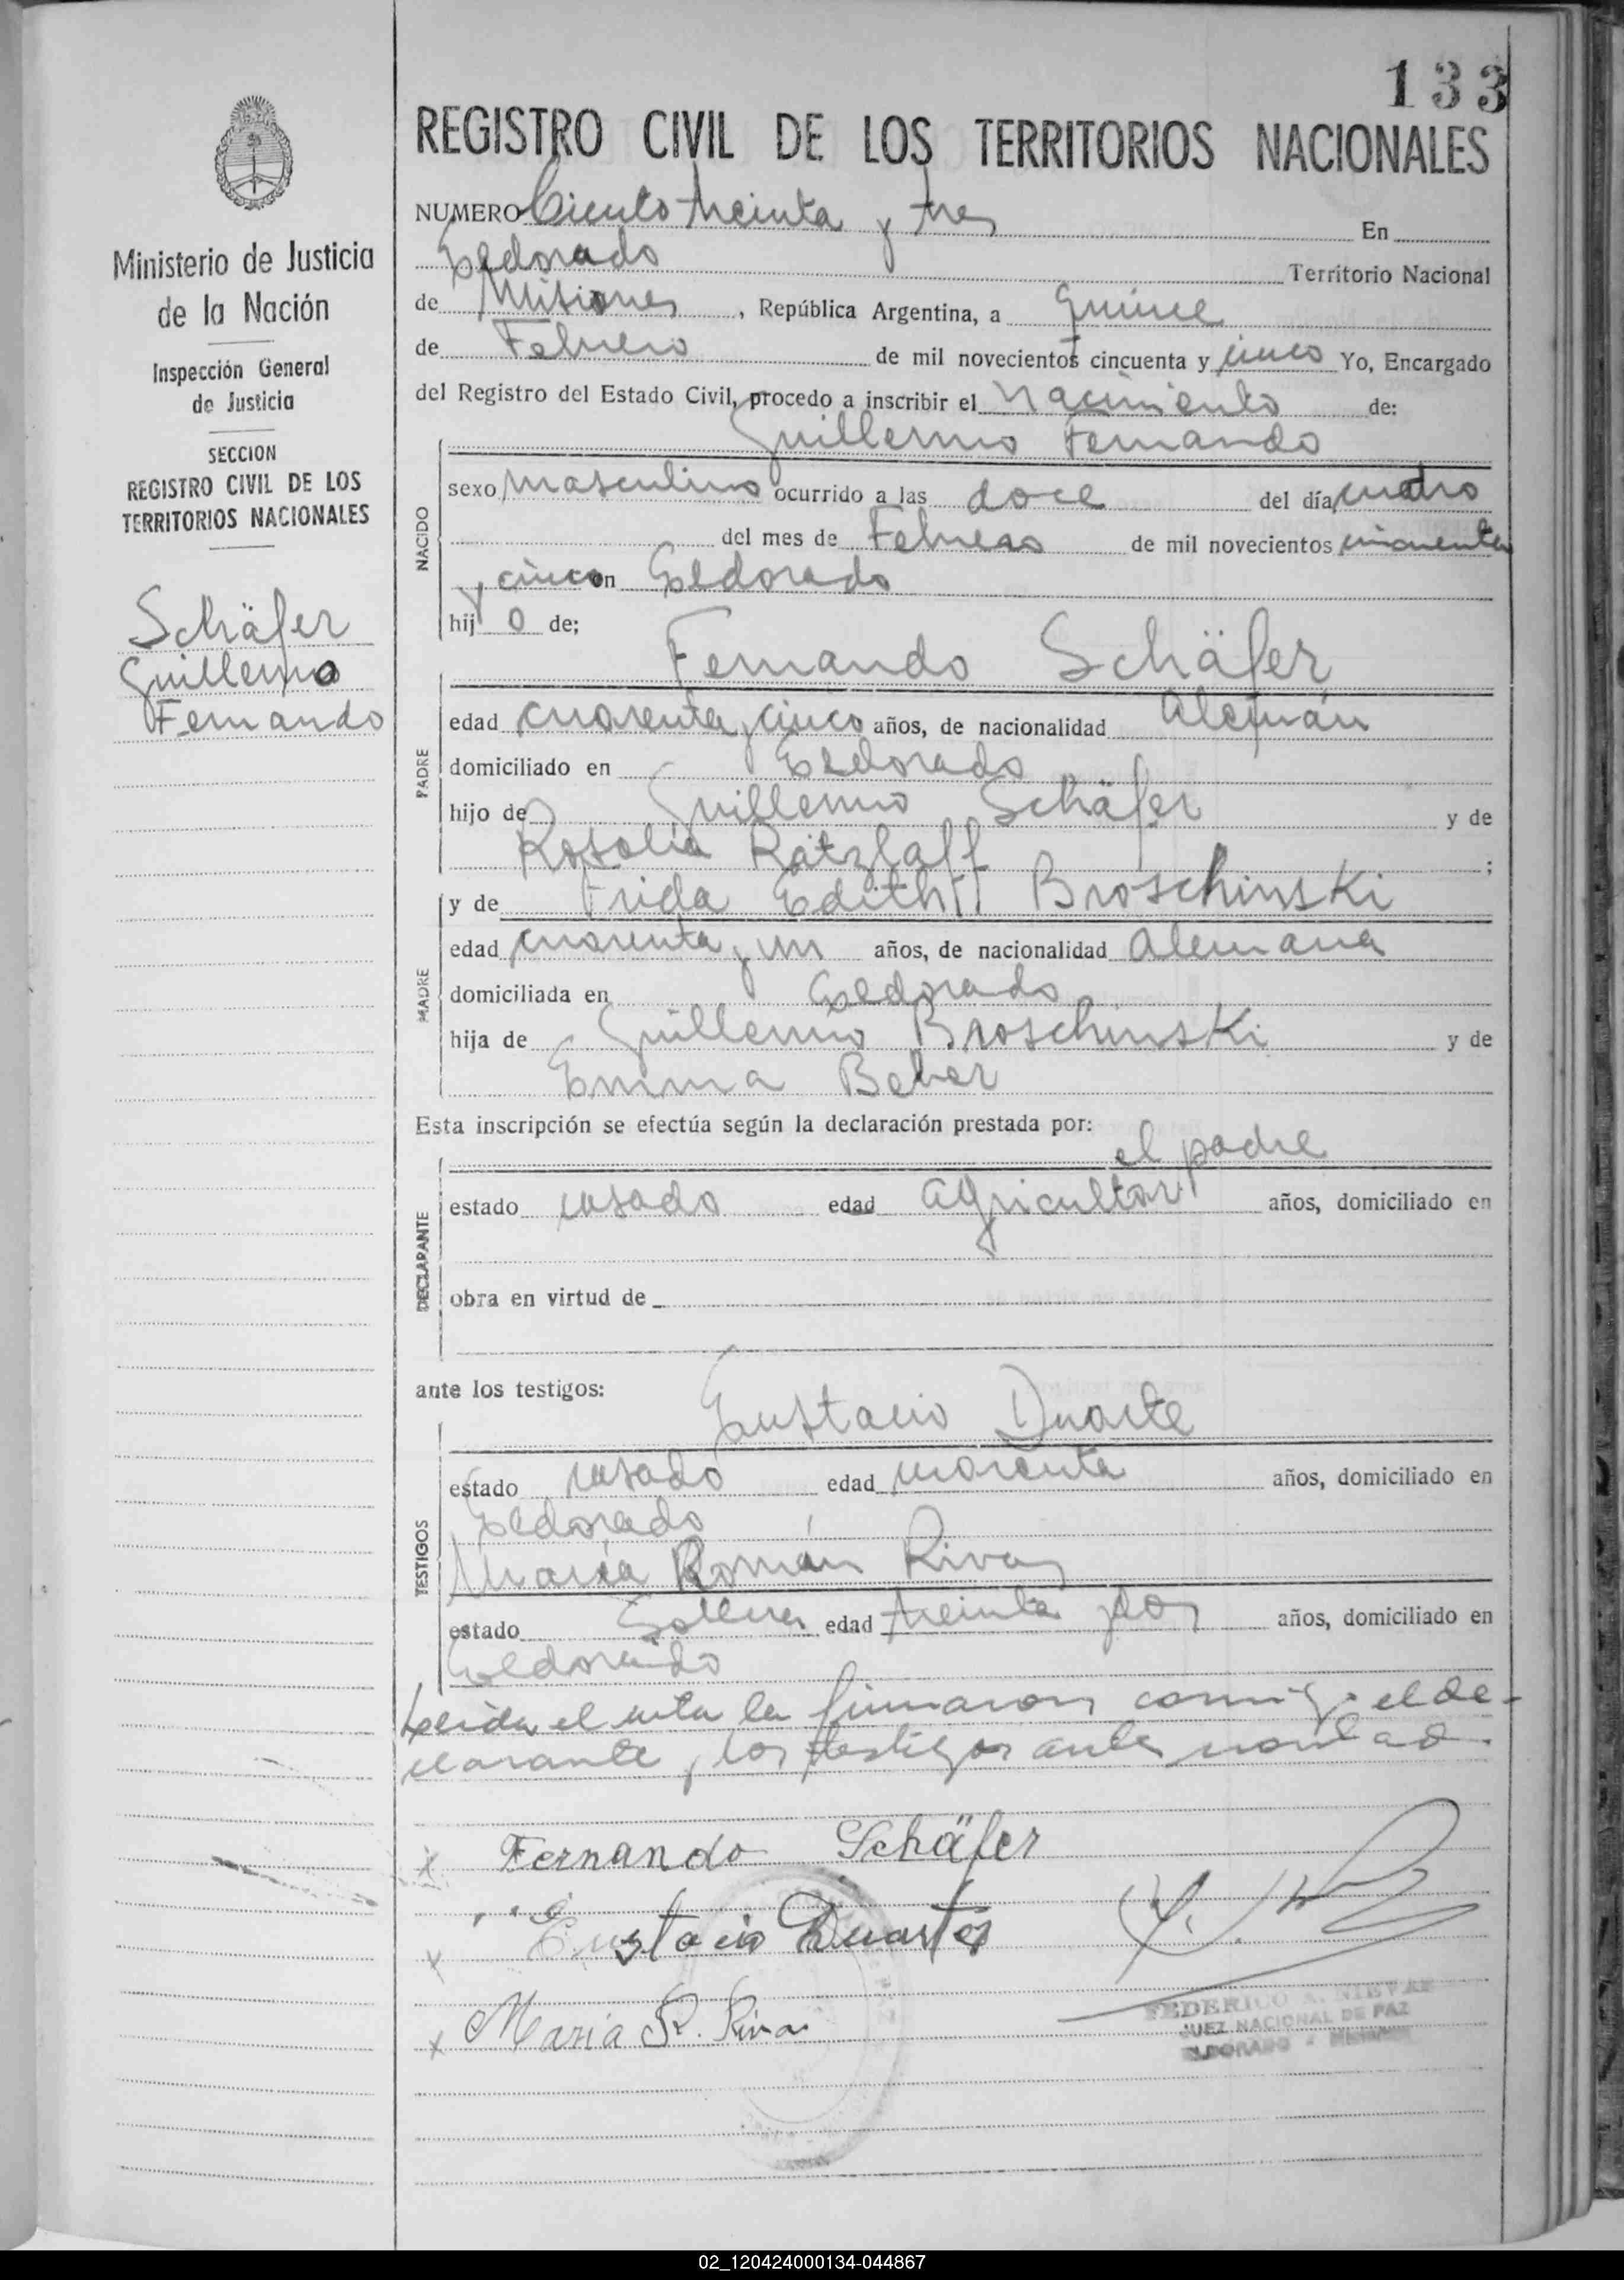 133
REGISTRO CIVIL DE LOS TERRITORIOS NACIONALES
Ministerio de Justicia
de la Nación
Inspección General
de Justicia
SECCION
REGISTRO CIVIL DE LOS
TERRITORIOS NACIONALES
Schäfer
Guillermo
Fernando
NUMERO Ciento treinta y tres En
Eldorado Territorio Nacional
de Misiones, República Argentina, a quince
de Febrero de mil novecientos cincuenta y cinco Yo, Encargado
del Registro del Estado Civil, procedo a inscribir el nacimiento de:
Guillermo Fernando
NACIDO
sexo masculino ocurrido a las doce del día cuatro
del mes de Febrero de mil novecientos cincuenta
y cinco en Eldorado
hijo de;
Fernando Schäfer
PADRE
edad cuarenta y cinco años, de nacionalidad Alemán
domiciliado en Eldorado
hijo de Guillermo Schäfer y de
Rosalia Ratzlaff ;
y de Frida Edith Broschinski
MADRE
edad cuarenta y un años, de nacionalidad Alemana
domiciliada en Eldorado
hija de Guillermo Broschinski y de
Emma Beber
Esta inscripción se efectúa según la declaración prestada por:
el padre
DECLARANTE
estado casado edad agricultor años, domiciliado en
obra en virtud de
ante los testigos:
Eustacio Duarte
TESTIGOS
estado casado edad cuarenta años, domiciliado en
Eldorado
María Román Rivas
estado Soltera edad treinta y dos años, domiciliado en
Eldorado
Leida el acta la firmaron conmigo el de-
clarante y los testigos
Fernando Schäfer
Eustacio Duarte
Maria R. Rivas
FEDERICO A. NIEVAS
JUEZ NACIONAL DE PAZ
ELDORADO - MISIONES
02_120424000134-044867